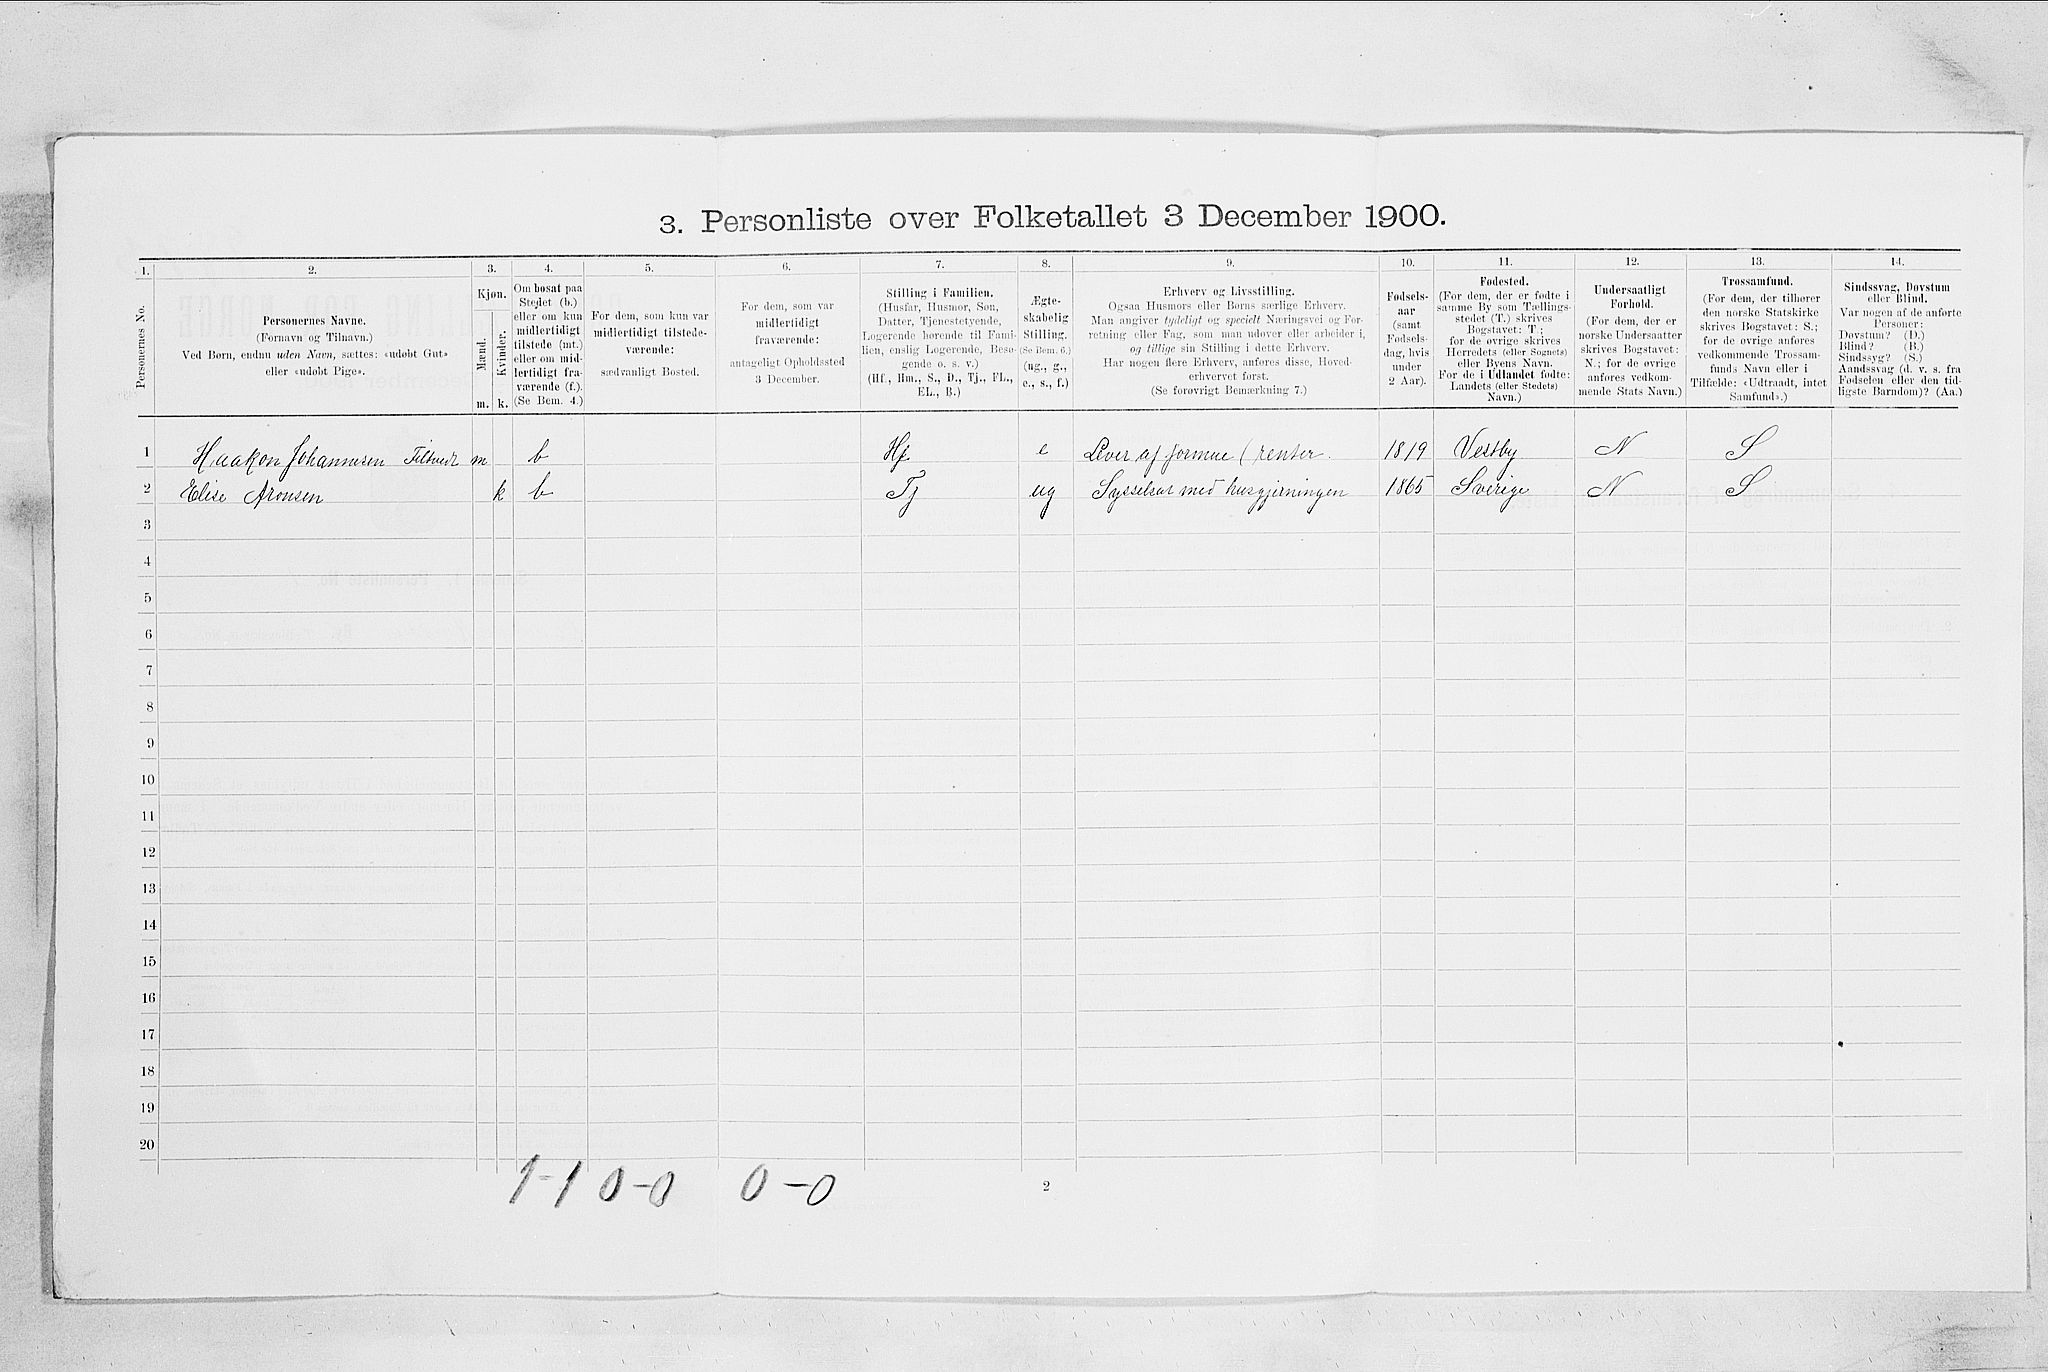 3. Personliste over Folketallet 3 December 1900.
1. 2. 3. 4. 5. 6. 7. 8. 9. 10. 11. 12. 13. 14.
Personernes No.
Personernes Navne.
(Fornavn og Tilnavn.)
Ved Børn, endnu uden Navn, sættes: «udøbt Gut»
eller «udøbt Pige».
Kjøn.
Mænd.
Kvinder.
m. k.
Om bosat paa
Stedet (b.)
eller om kun
midlertidigt
tilstede (mt.)
eller om mid-
lertidigt fra-
værende (f.).
(Se Bem. 4.)
For dem, som kun var
midlertidigt tilstede-
værende:
sædvanligt Bosted.
For dem, som var
midlertidigt
fraværende:
antageligt Opholdssted
3 December.
Stilling i Familien.
(Husfar, Husmor, Søn,
Datter, Tjenestetyende,
Logerende hørende til Fami-
lien, enslig Logerende, Besø-
gende o. s. v.)
(Hf., Hm., S., D., Tj., FL.,
EL., B.)
Ægte-
skabelig
Stilling.
(Se Bem. 6.)
(ug., g.,
e., s., f.)
Erhverv og Livsstilling.
Ogsaa Husmors eller Børns særlige Erhverv.
Man angiver tydeligt og specielt Næringsvei og For-
retning eller Fag, som man udøver eller arbeider i,
og tillige sin Stilling i dette Erhverv.
Har nogen flere Erhverv, anføres disse, Hoved-
erhvervet først.
(Se forøvrigt Bemærkning 7.)
Fødsels-
aar
(samt
Fødsels-
dag, hvis
under
2 Aar).
Fødested.
(For dem, der er fødte i
samme By som Tællings-
stedet (T.) skrives
Bogstavet: T.;
for de øvrige skrives
Herredets (eller Sognets)
eller Byens Navn.
For de i Udlandet fødte:
Landets (eller Stedets)
Navn.)
Undersaatligt
Forhold.
(For dem, der er
norske Undersaatter
skrives Bogstavet:
N.; for de øvrige
anføres vedkom-
mende Stats Navn.)
Trossamfund.
(For dem, der tilhører
den norske Statskirke
skrives Bogstavet: S.;
for de øvrige anføres
vedkommende Trossam-
funds Navn eller i
Tilfælde: «Udtraadt, intet
Samfund».)
Sindssvag, Døvstum
eller Blind.
Var nogen af de anførte
Personer:
Døvstum? (D.)
Blind? (B.)
Sindssyg? (S.)
Aandssvag (d. v. s. fra
Fødselen eller den tid-
ligste Barndom)? (Aa.)
1 Haakon Johannesen m b Hf e Lever af formue (renter. 1819 Vestby N S
2 Elise Aronsen k b Tj ug Sysselsat med husgjerningen 1865 Sverige N S
3
4
5
6
7
8
9
10
11
12
13
14
15
16
17
18
19
20
1-1 0-0 0-0
2